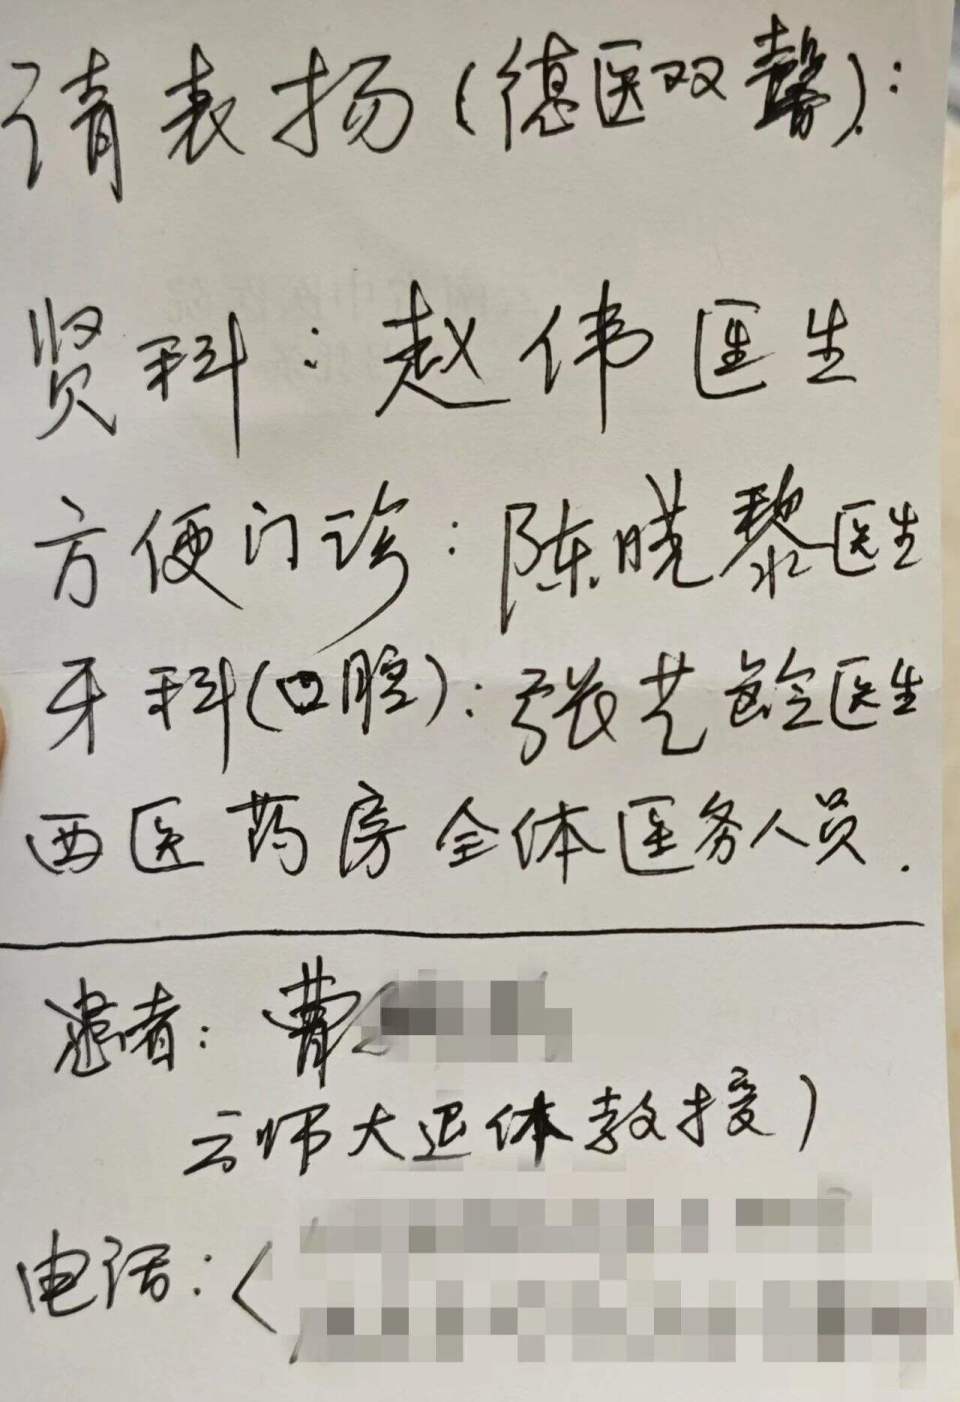 请表扬(德医双馨):
肾科:赵伟医生
方便门诊:陈晓黎医生
牙科(口腔):张艺龄医生
西医药房全体医务人员.
患者:曹
云师大退休教授)
电话:(